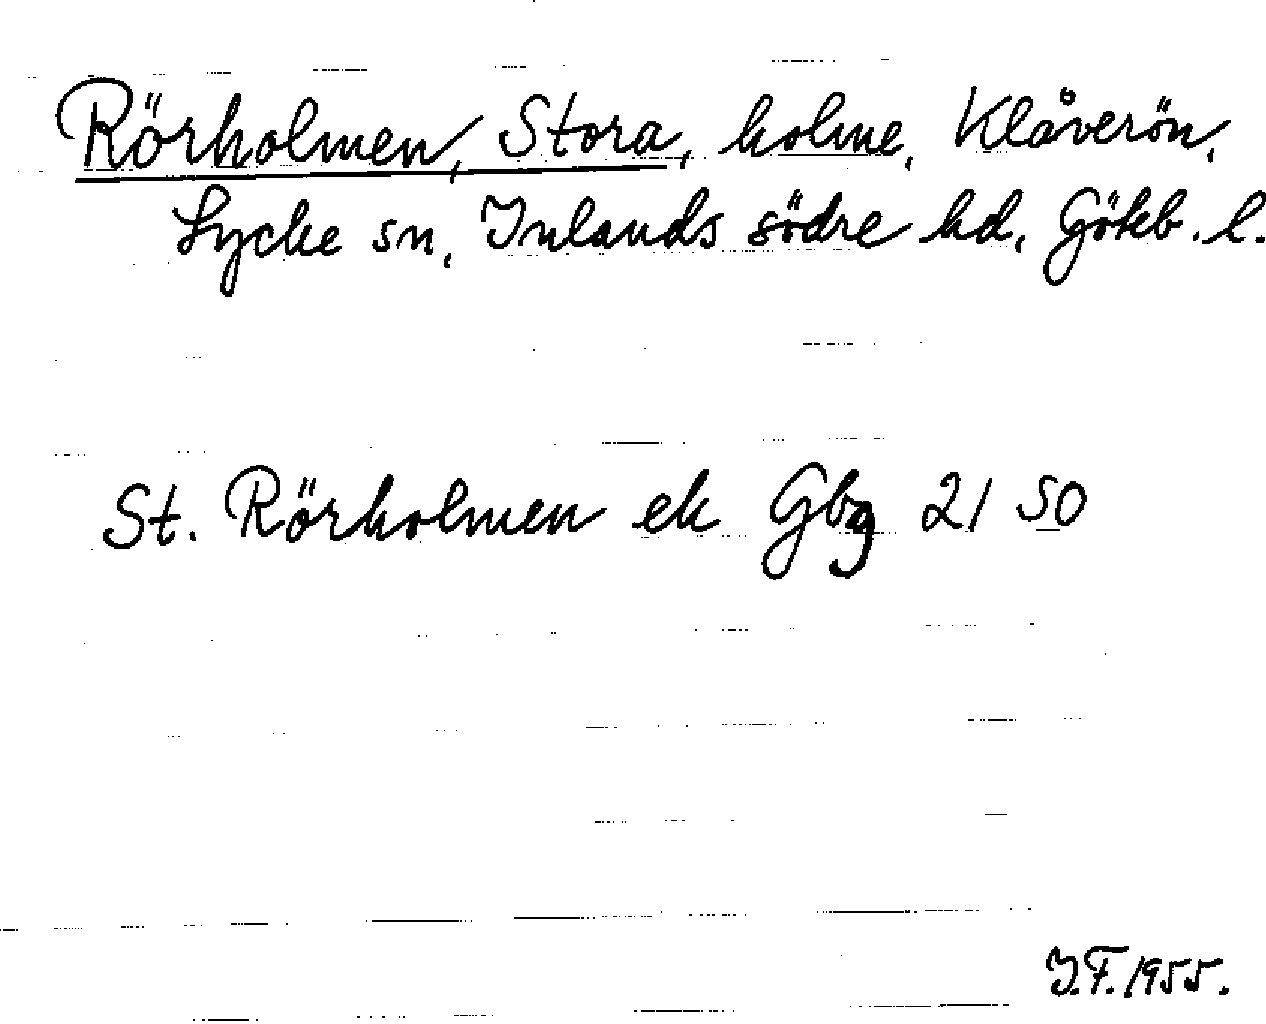 Rörholmen, Stora, holme, Klåverön,
Lycke sn, Inlands södre hd, Götb. l.
St. Rörholmen ek Gbg 21 SO
I.F. 1955.